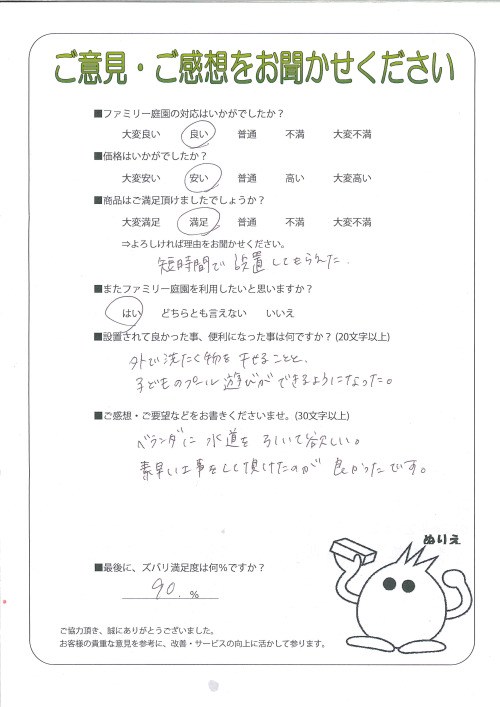 ご意見・ご感想をお聞かせください
■ファミリー庭園の対応はいかがでしたか？
大変良い 良い 普通 不満 大変不満
■価格はいかがでしたか？
大変安い 安い 普通 高い 大変高い
■商品はご満足頂けましたでしょうか？
大変満足 満足 普通 不満 大変不満
⇒よろしければ理由をお聞かせください。
短時間で設置してもらえた。
■またファミリー庭園を利用したいと思いますか？
はい どちらとも言えない いいえ
■設置されて良かった事、便利になった事は何ですか？(20文字以上)
外で洗たく物を干せることと、
子どものプール遊びができるようになった。
■ご感想・ご要望などをお書きくださいませ。(30文字以上)
ベランダに水道を引いて欲しい。
素早い工事をして頂けたのが良かったです。
ぬりえ
■最後に、ズバリ満足度は何％ですか？
90.％
ご協力頂き、誠にありがとうございました。
お客様の貴重な意見を参考に、改善・サービスの向上に活かして参ります。